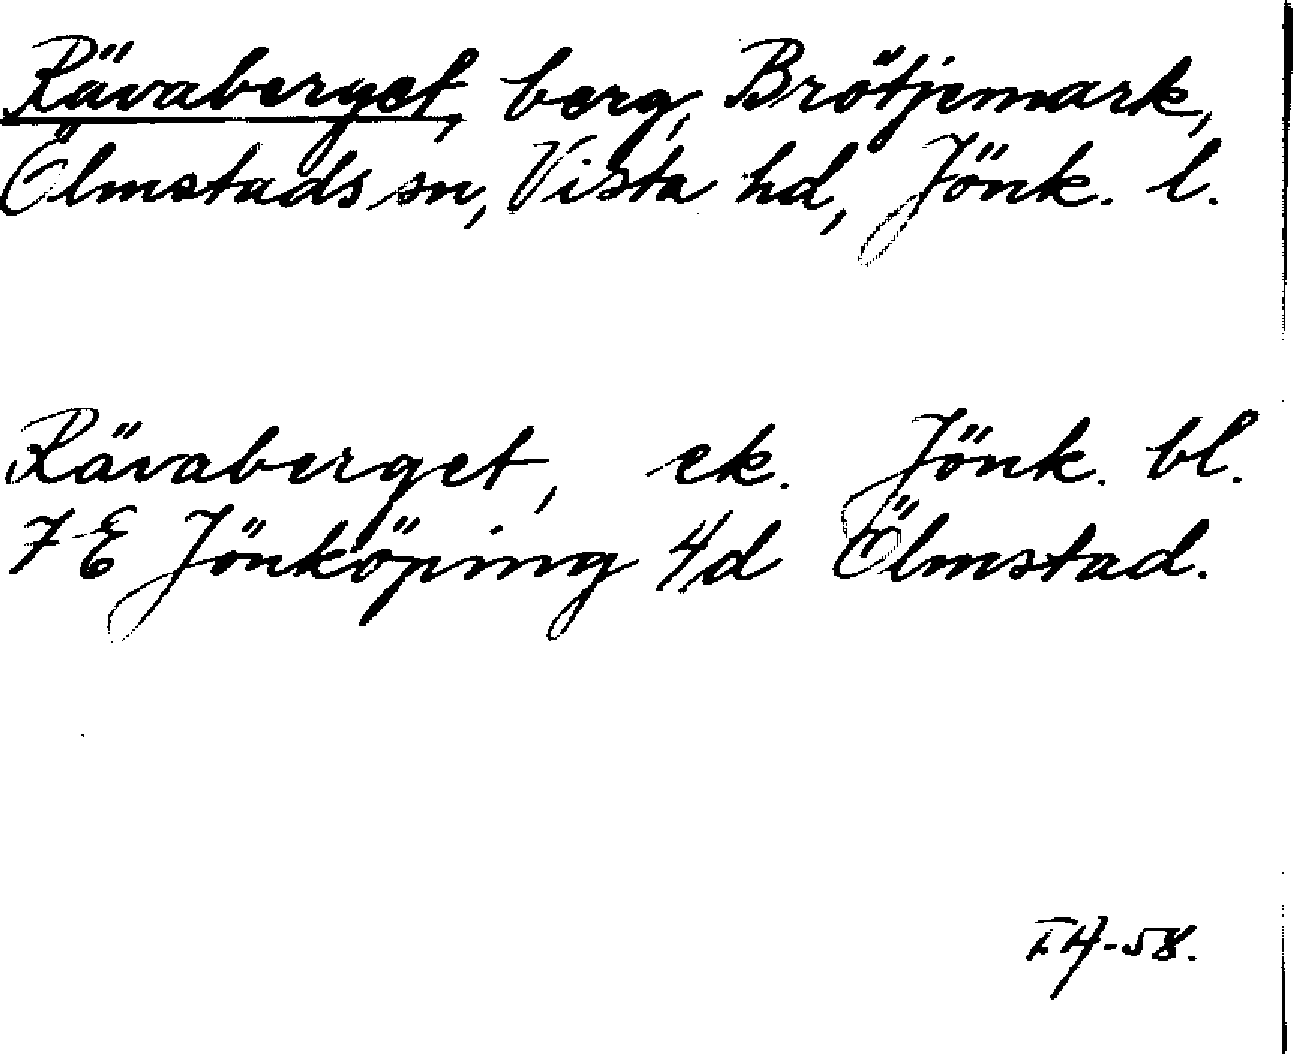 Rävaberget, berg, Brötjemark,
Ölmstads sn, Vista hd, Jönk. l.
Rävaberget, ek. Jönk. bl.
7 E Jönköping 4/d Ölmstad.
-58.